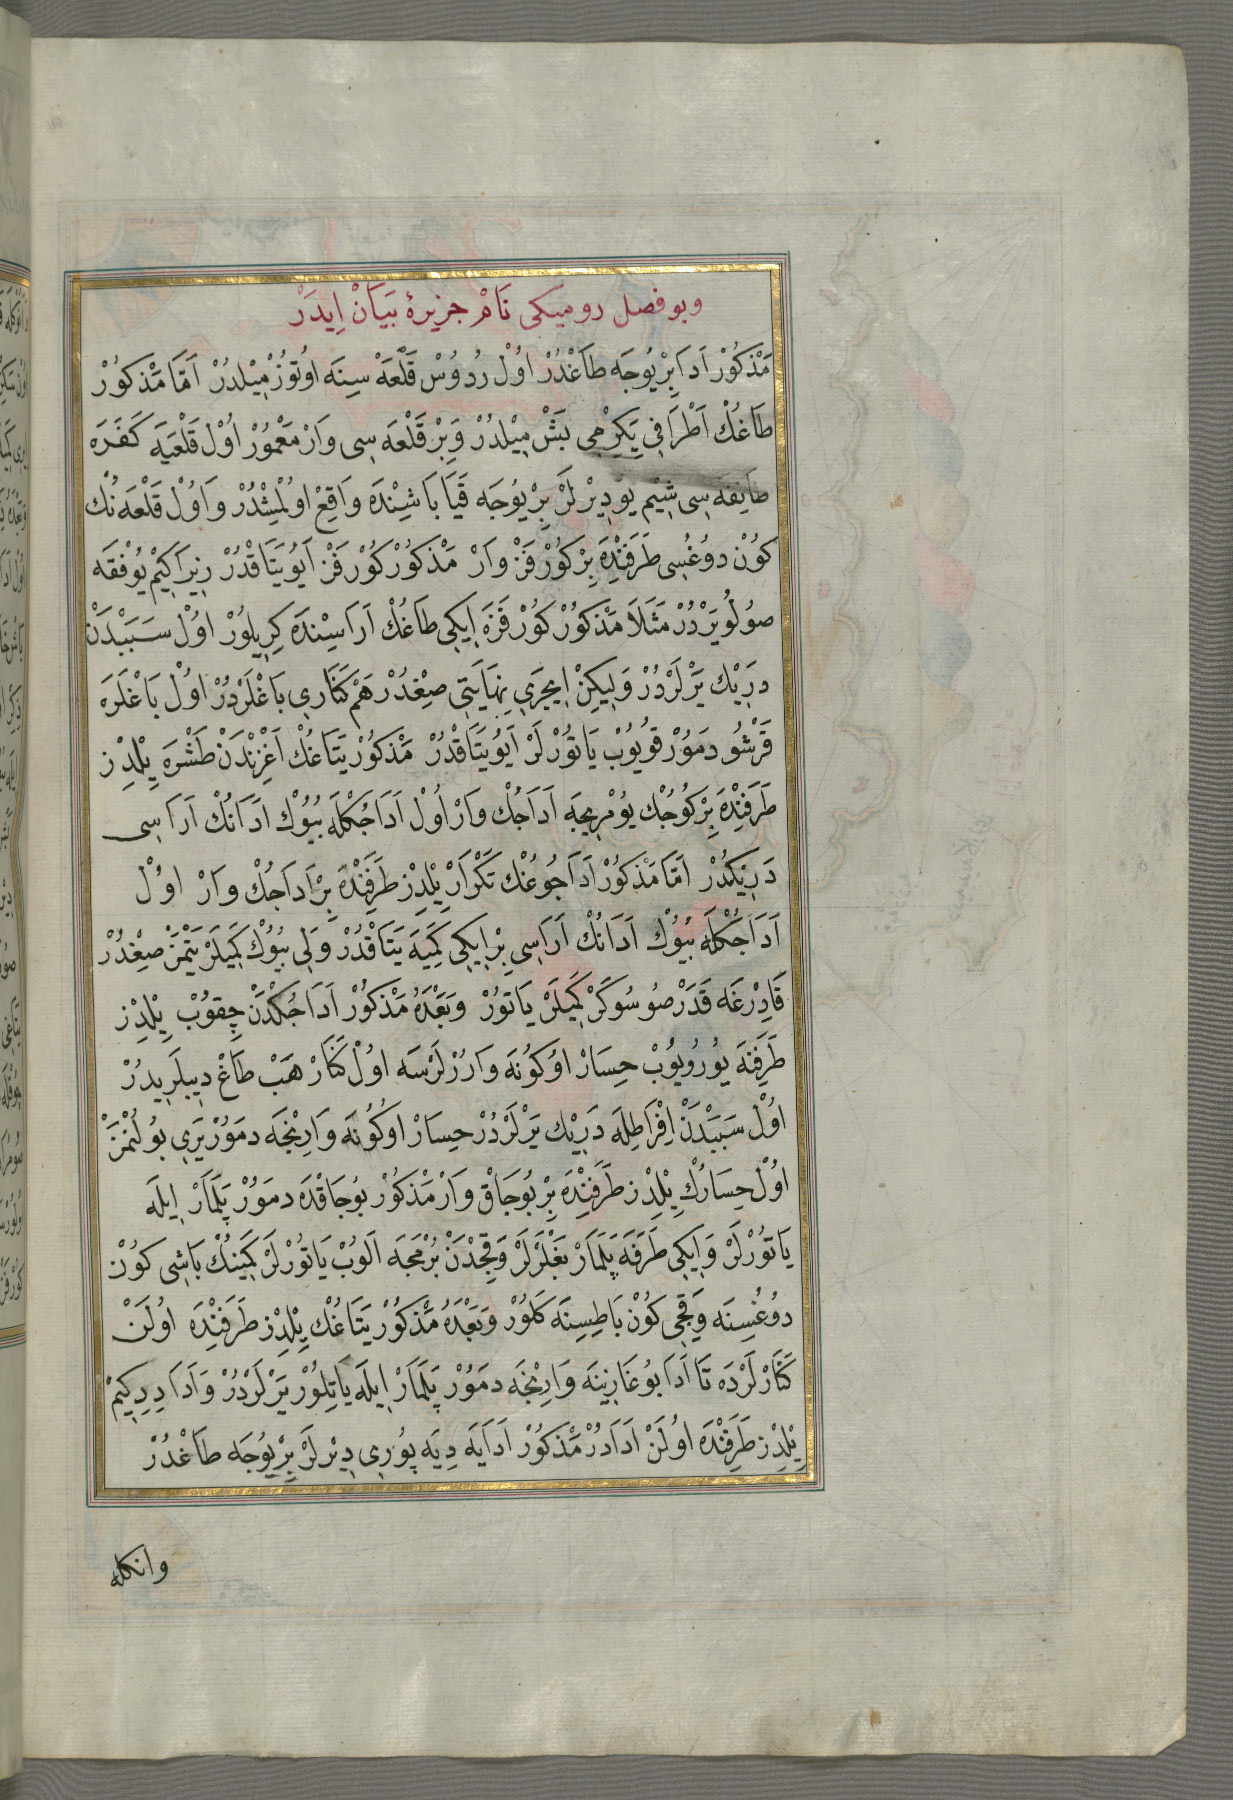 وبو فصل رومیکی نَامْ جزیرۀ بَیَانْ اِیدَرْ
مَذْکُورْ اَدَا بِرْ یُوجَه طَاغْدُرْ اوُلْ رُدوُسْ قَلْعَه سِنَه اوُتوُزْ مِیْلدُرْ اَمَّا مَذْکورْ
طَاغُكْ اَطْرَافِی یَکِرْمِی بَشْ مِیْلدُرْ وَبِرْ قَلْعَه سِی وَارْ مَعْمُورْ اوُلْ قَلْعَیَه کَفَرَه
طَایفَه سِی شِیْم یوُ دِیْرْلَرْ بِرْ یُوجَه قَیَا بَاشِنْدَه وَاقِعْ اوُلْمِشْدُرْ وَاوُلْ قَلْعَه نُك
کوُنْ دوُغُسِی طَرَفَنْدَه بِرْ کوُرْفَزْ وَارْ مَذْکوُرْ کوُرْفَزْ اَیُو یَتَاقْدُرْ زِیرَاکِیْم یوُفْقَه
صوُلُو یَرْدُرْ مَثَلَا مَذْکوُرْ کوُرْفَزَه اِیکِی طَاغُكْ اَرَاسِنْدَه کِرِیلوُرْ اوُلْ سَبَبْدَنْ
دَرِیْك یَرْلَرْدُرْ وَلِیکِنْ اِیچَرِی نِهَایَتِی صِیْغْدُرْ هَمْ کَنَارِی بَاغْلَرْدُرْ اوُلْ بَاغْلَرَه
قَرْشُو دَمُوْر قوُیوُبْ یَاتوُرْلَرْ اَیُو یَتَاقْدُرْ مَذْکوُرْ یَتَاغُكْ اَغْزِنْدَنْ طَشْرَه یِلْدِز
طَرَفِنْدَه بِرْ کوُجُكْ یوُمْرِیجَه اَدَاجُكْ وَارْ اوُلْ اَدَاجُكْلَه بُیوُكْ اَدَانُكْ اَرَاسِی
دَرِیْکدُرْ اَمَّا مَذْکوُرْ اَدَاجُوغُنْك تَکْرَارْ یِلْدِز طَرَفَنْدَه بِرْ اَدَاجُكْ وَارْ اوُلْ
اَدَاجُكْلَه بُیوُك اَدَانُكْ اَرَاسِی بِرْ اِیکِی کَمِیَه یَتَاقْدُرْ وَلِی بُیوُكْ کَمِیلَرْ یَتْمَزْ صِیْغْدُرْ
قَادِرْغَه قَدَرْ صوُ سُوکَرْ کَمِیلَرْ یَاتوُرْ وَبَعْدَهُ مَذْکوُرْ اَدَاجُكْدَنْ چِقوُبْ یِلْدِز
طَرَفِنَه یوُرُویوُبْ حِسَارْ اوُکوُنَه وَارُرْلَرْسَه اوُلْ کَنَارْ هَبْ طَاغْ دِیبْلَرِیدُرْ
اوُلْ سَبَبْدَنْ اِفْرَاطِلَه دَرِیْك یَرْلَرْدُرْ حِسَارْ اوُکوُنَه وَارِنْجَه دَمُوْر یَرِی بوُلُنْمَزْ
اوُلْ حِسَارُكْ یِلْدِز طَرَفِنْدَه بِرْ بوُجَاقْ وَارْ مَذْکوُرْ بوُجَاقْدَه دَمُوْر پَلَمَارْ اِیلَه
یَاتوُرْلَرْ وَاِیکِی طَرَفَه پَلَمَارْ بَغْلَرْلَرْ وَقِچْدَنْ بُرْمَجَه اَلوُبْ یَاتوُرْلَرْ کَمِینُكْ بَاشِی کوُنْ
دوُغُسِنَه وَقِچِی کوُنْ بَاطِسِنَه کَلوُرْ وَبَعْدَهُ مَذْکوُرْ یَتَاغُكْ یِلْدِز طَرَفِنْدَه اوُلَنْ
کَنَارْلَرْدَه تَا اَدَا بوُغَازِینَه وَارِنْجَه دَمُوْر پَلَمَارْ اِیلَه یَاتِلوُرْ یَرْلَرْدُرْ وَاَدَا دِدِکِیمْ
یِلْدِز طَرَفَنْدَه اوُلَنْ اَدَادُرْ مَذْکوُرْ اَدَایَه دِیَه پوُرِی دِیْرْلَرْ بِرْ یُوجَه طَاغْدُرْ
وانکله